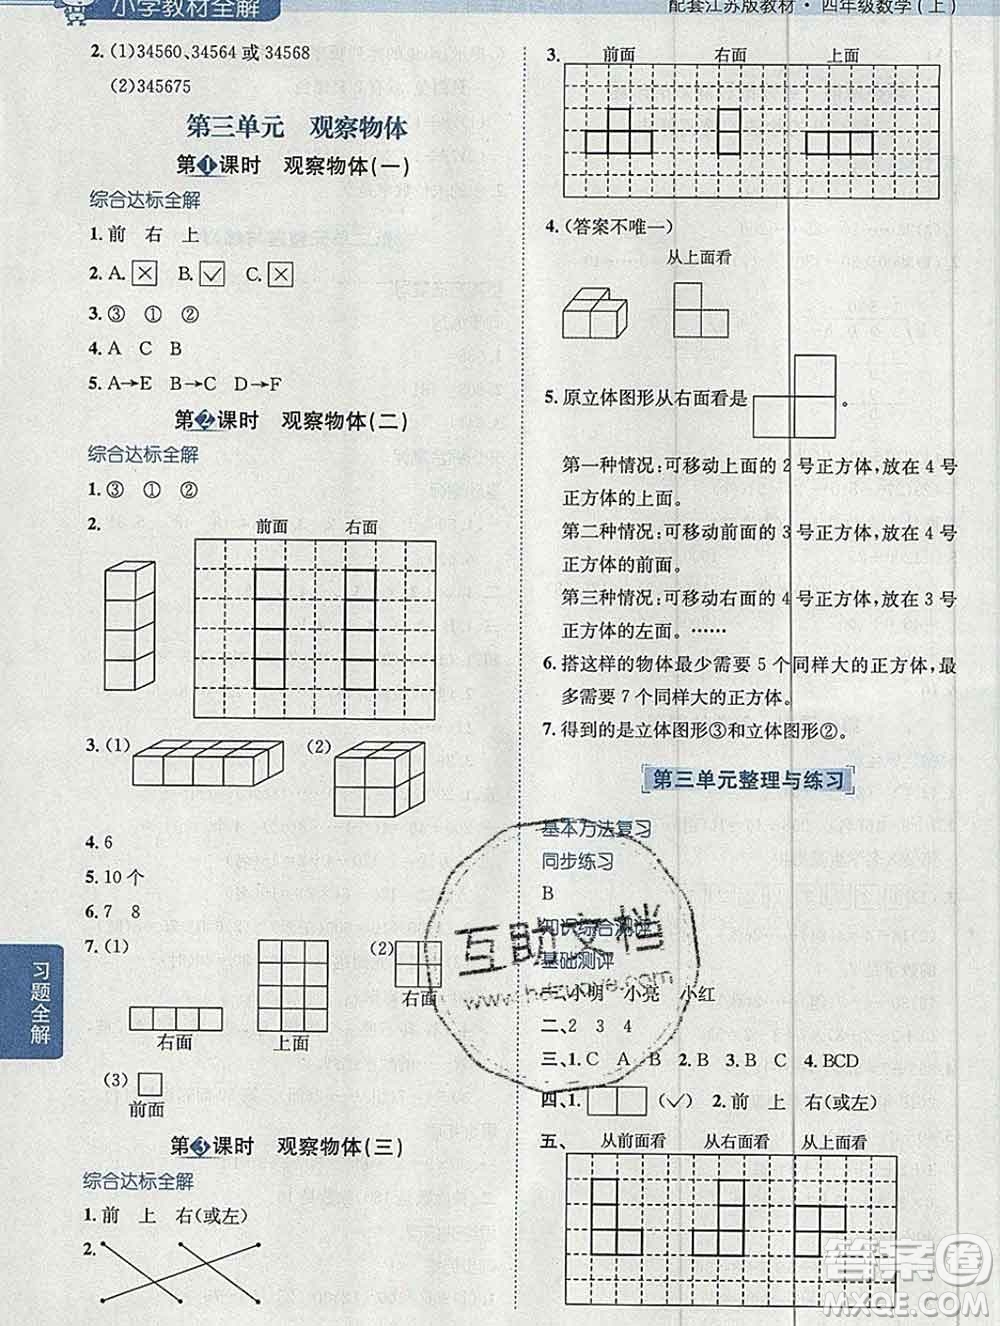 小学教材全解
配套江苏版教材·四年级数学(上)
2. (1)34560、34564 或 34568
(2)345675
第三单元 观察物体
第1课时 观察物体(一)
综合达标全解
1. 前 右 上
2. A. × B. ✓ C. ×
3. ③ ① ②
4. A C B
5. A→E B→C D→F
第2课时 观察物体(二)
综合达标全解
1. ③ ① ②
2.
前面 右面
3. (1) (2)
4. 6
5. 10 个
6. 7 8
7. (1) (2)
右面 上面 右面
(3)
前面
第3课时 观察物体(三)
综合达标全解
1. 前 上 右(或左)
2.
3.
前面 右面 上面
4. (答案不唯一)
从上面看
5. 原立体图形从右面看是 。
第一种情况:可移动上面的 2 号正方体,放在 4 号
正方体的上面。
第二种情况:可移动前面的 3 号正方体,放在 4 号
正方体的前面。
第三种情况:可移动右面的 4 号正方体,放在 3 号
正方体的左面。……
6. 搭这样的物体最少需要 5 个同样大的正方体,最
多需要 7 个同样大的正方体。
7. 得到的是立体图形③和立体图形②。
第三单元整理与练习
基本方法复习
同步练习
B
知识综合测评
基础测评
一、小明 小亮 小红
二、2 3 4
三、1. C A B 2. B 3. C 4. BCD
四、1. (✓) 2. 前 上 右(或左)
五、 从前面看 从右面看 从上面看
习题全解
互助文档
答案圈
MXQE.COM